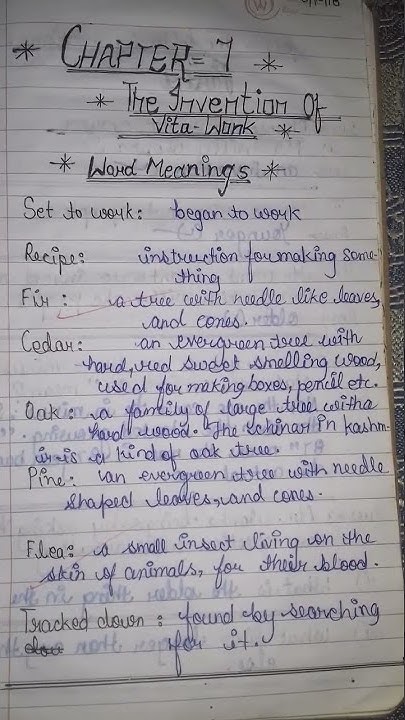 * CHAPTER= 7 *
* The Invention Of
Vita-Wonk *
* Word Meanings *
Set to work: began to work
Recipe: instruction for making some-
thing
Fir : a tree with needle like leaves,
and cones.
Cedar: an evergreen tree with
hard, red sweet smelling wood,
used for making boxes, pencil etc.
Oak: a family of large tree with a
hard wood. The chinar in kashm-
ir is a kind of oak tree.
Pine: an evergreen tree with needle
shaped leaves, and cones.
Flea: a small insect living on the
skin of animals, for their blood.
Tracked down : found by searching
for it.